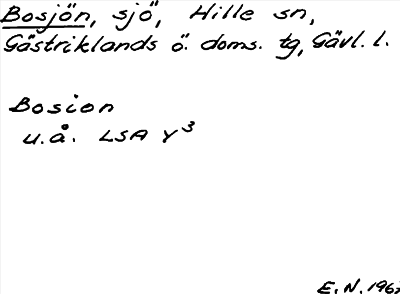 Bosjön, sjö, Hille sn,
Gästriklands ö. doms. tg, Gävl. l.
Bosion
u.å. LSA Y³
E.N.